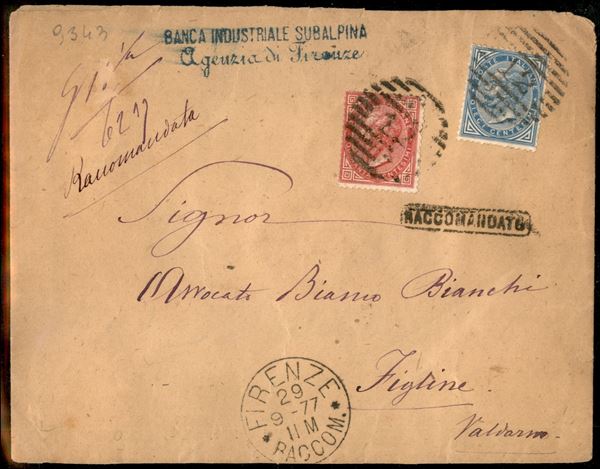 9343
BANCA INDUSTRIALE SUBALPINA
Agenzia di Firenze
Raccomandata
POSTE ITALIANE
DIECI CENTESIMI
RACCOMANDATO
Signor
Avvocato Bianco Bianchi
Figline
Valdarno
FIRENZE
29
9-77
11 M
* RACCOM. *